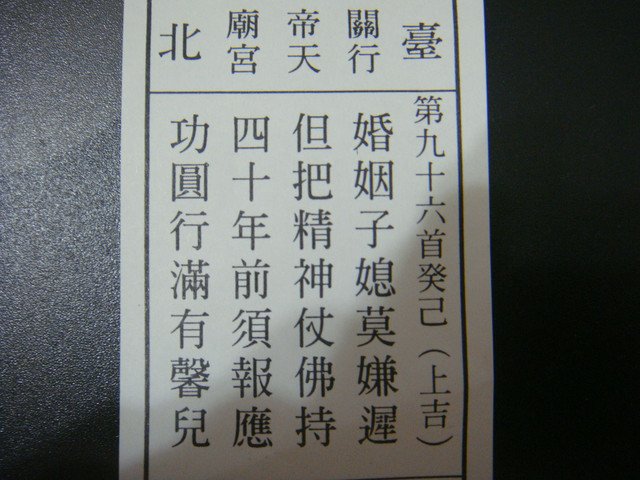 臺
關行
帝天
廟宮
北
第九十六首癸己（上吉）
婚姻子媳莫嫌遲
但把精神仗佛持
四十年前須報應
功圓行滿有馨兒